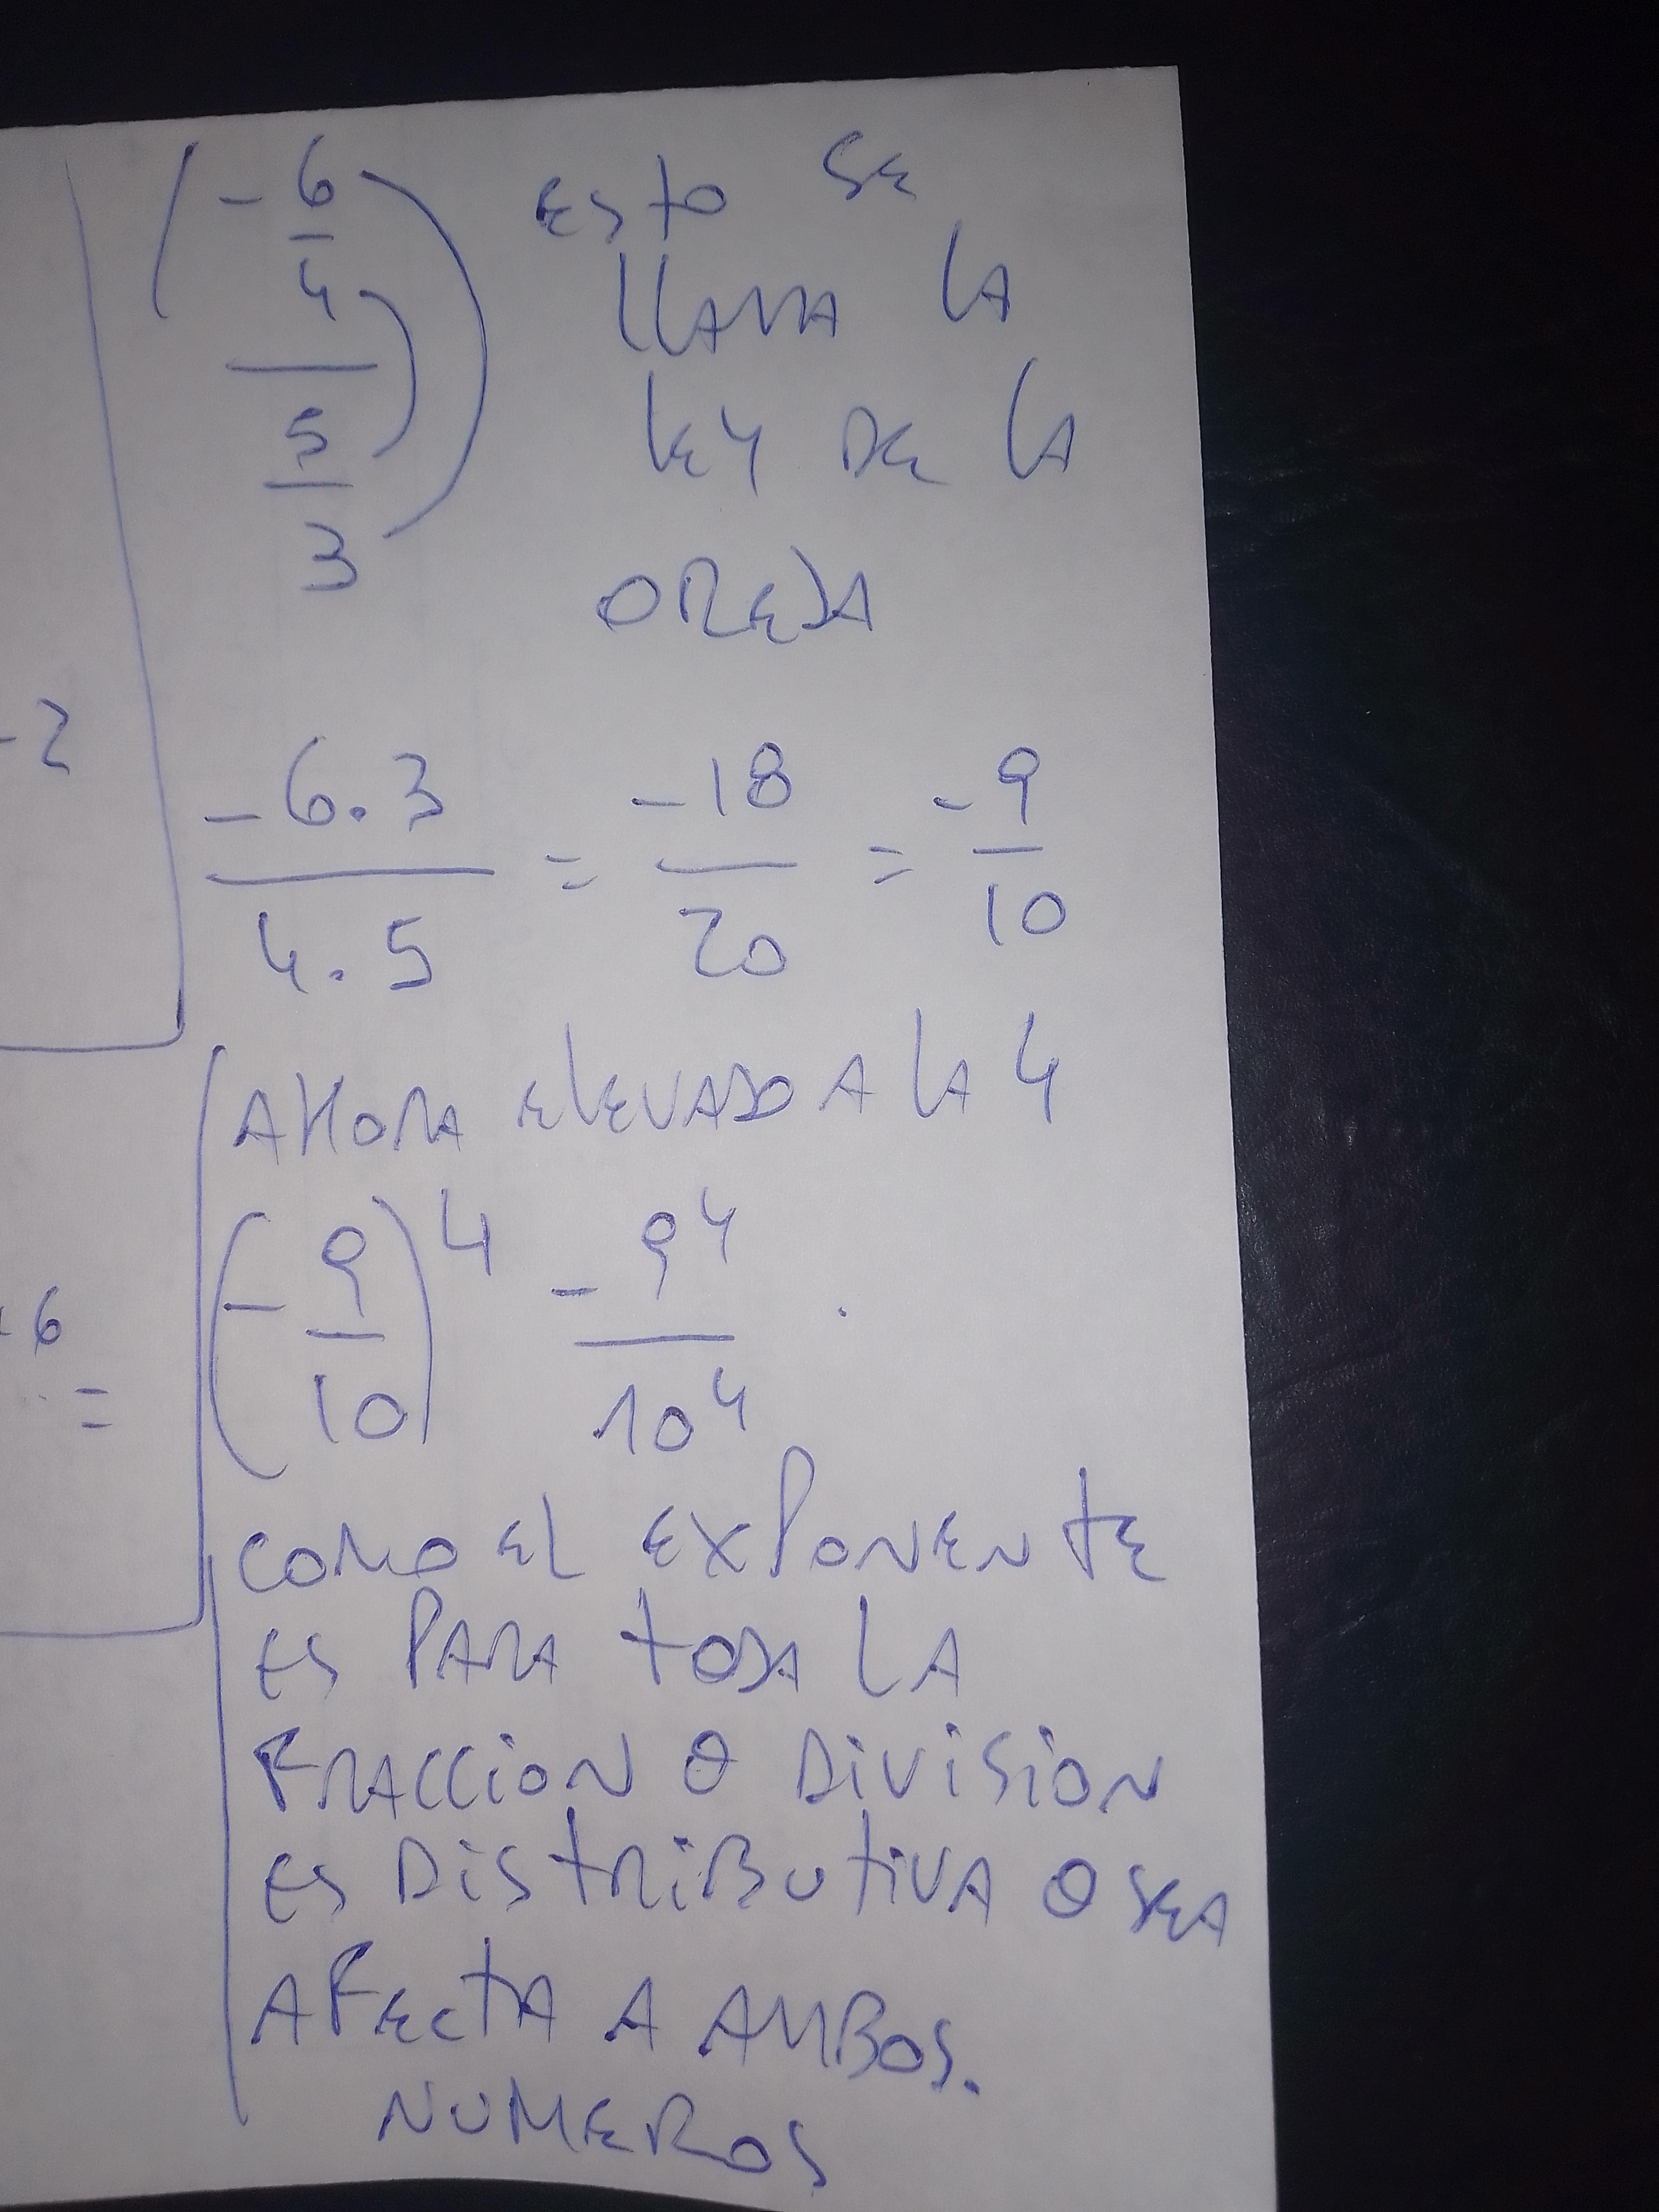 (-6/4
5/3)
ESTO SE
LLAMA LA
LEY DE LA
OREJA
-2
-6.3/4.5 = -18/20 = -9/10
AHORA ELEVADO A LA 4
6 =
(-9/10)^4 -9^4/10^4
COMO EL EXPONENTE
ES PARA TODA LA
FRACCION O DIVISION
ES DISTRIBUTIVA O SEA
AFECTA A AMBOS.
NUMEROS